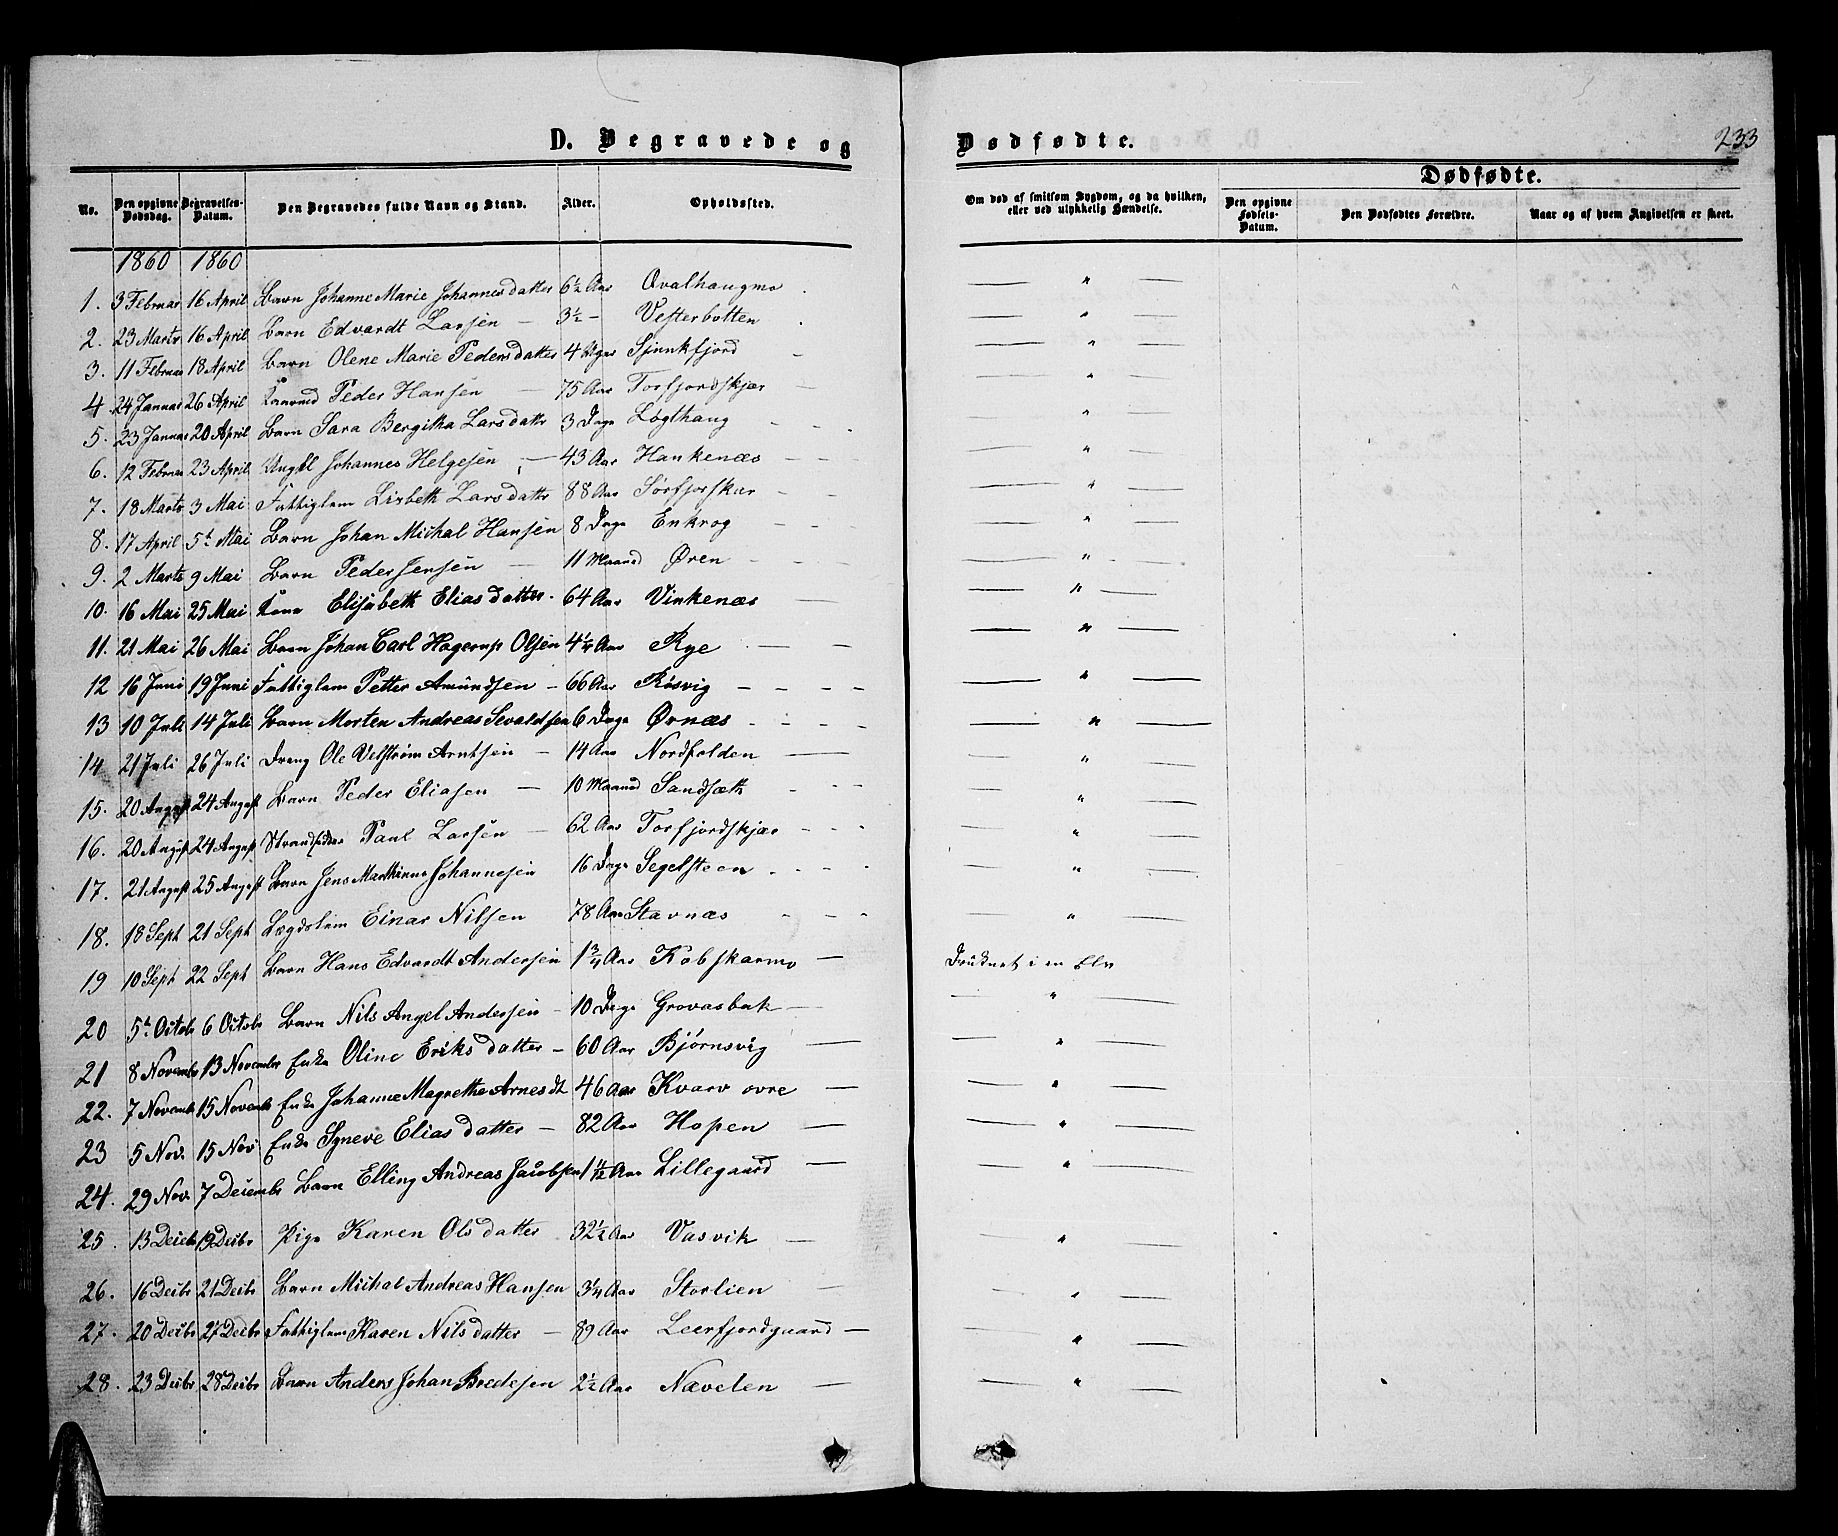 D. Begravede og Dødfødte.
233
Dødfødte.
No. Den opgivne Dødsdag. Begravelses-Datum. Den Begravedes fulde Navn og Stand. Alder. Opholdssted. Om død af smitsom Sygdom, og da hvilken, eller ved ulykkelig Hændelse. Den opgivne Fødsels-Datum. Den Dødfødtes Forældre. Naar og af hvem Angivelsen er skeet.
1860 1860
1. 3 Februar 16 April Barn Johanne Marie Johannesdatter 6½ Aar Qvalhaugmo "
2. 23 Marts 16 April Barn Edvardt Larsen — 3½ — Vesterbotten "
3. 11 Februar 18 April Barn Olene Marie Pedersdatter 4 Uger Sjunkfjord "
4. 24 Januar 26 April Peder Hansen — 75 Aar Torfjordskjær "
5. 23 Januar 20 April Barn Sara Bergitha Larsdatter 3 Dage Løgthaug "
6. 12 Februar 23 April Ungkl Johannes Helgesen — 43 Aar Hankenæs "
7. 18 Marts 3 Mai Fattiglem Lisbeth Larsdatter 88 Aar Sørfjorskar "
8. 17 April 5t Mai Barn Johan Michal Hansen 8 Dage Enkrog "
9. 2 Marts 9 Mai Barn Peder Jensen — 11 Maaned Øren "
10. 16 Mai 25 Mai Kone Elisabeth Eliasdatter 64 Aar Vinkenæs "
11. 21 Mai 26 Mai Barn Johan Carl Hagerup Olsen 4¼ Aar Rye "
12 16 Juni 19 Juni Fattiglem Petter Amundsen — 66 Aar Røsvig "
13 10 Juli 14 Juli Barn Morten Andreas Sevaldsen 6 Dage Ørnæs "
14 21 Juli 26 Juli Dreng Ole Velstrøm Arntsen — 14 Aar Nordfolden "
15. 20 August 24 August Barn Peder Eliasen — 10 Maaned Sandsæth "
16. 20 August 24 August Strandsidder Paul Larsen — 62 Aar Torfjordskjær "
17. 21 August 25 August Barn Jens Marthinus Johannesen 16 Dage Segelsteen "
18. 18 Sept 21 Sept Lægdslem Einar Nilsen 78 Aar Stavnæs "
19 10 Sept 22 Sept Barn Hans Edvardt Andersen 1¾ Aar Kobskarmo — Druknet i en Elv
20 5t Octob 6 Octobr Barn Nils Angel Andersen — 10 Dage Grovasbak "
21 8 Novembr 13 Novembr Enke Oline Eriksdatter — 60 Aar Bjørnsvig "
22. 7 Novembr 15 Novembr Enke Johanne Magrethe Arnesdt 46 Aar Kvarv ovre "
23 5 Nov. 15 Nov Enke Syneve Eliasdatter — 82 Aar Hopen "
24. 29 Nov. 7 Decembr Barn Elling Andreas Jacobsen 1½ Aar Lillegaard "
25. 13 Decbr 19 Decbr Pige Karen Olsdatter 32½ Aar Vasvik "
26. 16 Decbr 21 Decbr Barn Michal Andreas Hansen 3¼ Aar Storlien "
27. 20 Decbr 27 Decbr Fattiglem Karen Nilsdatter — 89 Aar Leerfjordgaard "
28. 23 Decbr 28 Decbr Barn Anders Johan Bredesen 2½ Aar Nævelen "